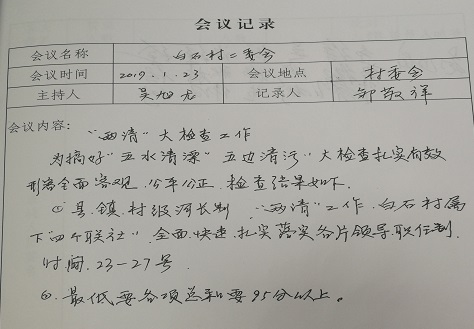 会议记录
会议名称 白石村二委会
会议时间 2019.1.23 会议地点 村委会
主持人 吴旭龙 记录人 邹敬祥
会议内容: "两清"大检查工作
为搞好"五水清漂""五边清污"大检查扎实有效
全面客观、公平公正、检查结果如下.
①县.镇.村级河长制 "两清"工作.白石村属
下"四个联社".全面.快速.扎实落实各片领导.职任制.
时间.23—27号.
②.最低要各项总和要95分以上。